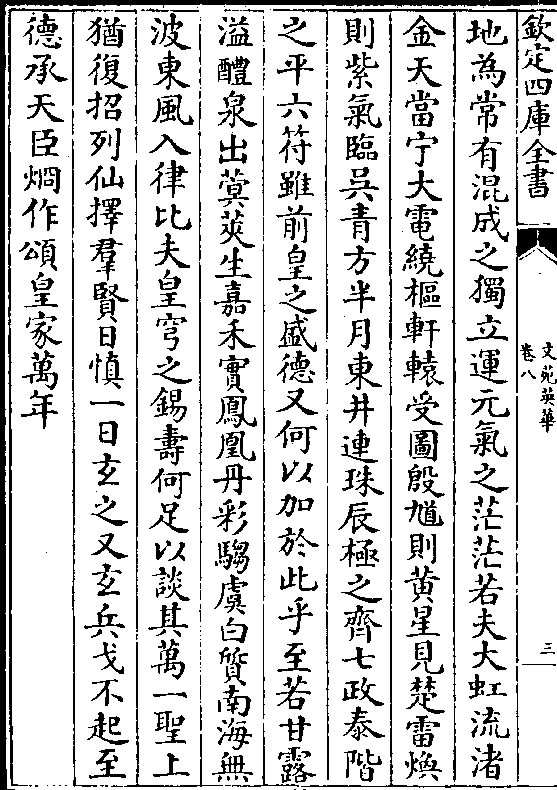 欽定四庫全書
文苑英華
卷八
三
地為常有混成之獨立運元氣之茫茫若夫大虹流渚
金天當宁大電繞樞軒轅受圖殷馗則黄星見楚雷煥
則紫氣臨吳青方半月東井連珠辰極之齊七政泰階
之平六符雖前皇之盛德又何以加於此乎至若甘露
溢醴泉出蓂莢生嘉禾實鳳凰丹彩騶虞白質南海無
波東風入律比夫皇穹之錫壽何足以談其萬一聖上
猶復招列仙擇羣賢日慎一日玄之又玄兵戈不起至
德承天臣炯作頌皇家萬年